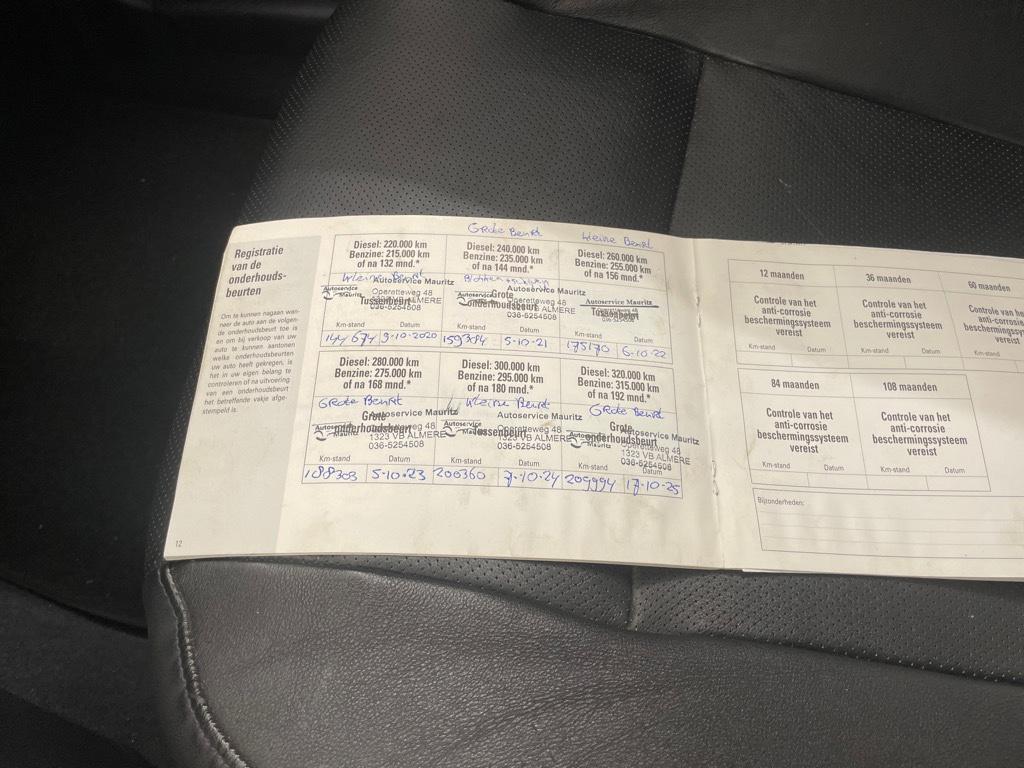 Registratie
van de
onderhouds-
beurten
Om te kunnen nagaan wan-
neer de auto aan de volgen-
de onderhoudsbeurt toe is
en om bij verkoop van uw
auto te kunnen aantonen
welke onderhoudsbeurten
uw auto heeft gekregen, is
het in uw eigen belang te
controleren of na uitvoering
van een onderhoudsbeurt
het betreffende vakje afge-
stempeld is.
12
Diesel: 220.000 km
Benzine: 215.000 km
of na 132 mnd.*
Kleine Beurt
Autoservice Mauritz
Autoservice
Mauritz
Operetteweg 48
1323 VB ALMERE
Tussenbeurt
036-5254508
Km-stand Datum
144 674 9-10-2020
Grote Beurt
Diesel: 240.000 km
Benzine: 235.000 km
of na 144 mnd.*
Autoservice Mauritz
Autoservice
Mauritz
Grote
onderhoudsbeurt
Operetteweg 48
1323 VB ALMERE
036-5254508
Km-stand Datum
159304 5-10-21
Kleine Beurt
Diesel: 260.000 km
Benzine: 255.000 km
of na 156 mnd.*
Autoservice Mauritz
Tussenbeurt
Km-stand Datum
175170 6-10-22
Diesel: 280.000 km
Benzine: 275.000 km
of na 168 mnd.*
Grote Beurt
Autoservice Mauritz
Grote
onderhoudsbeurt
Autoservice
Mauritz
Operetteweg 48
1323 VB ALMERE
036-5254508
Km-stand Datum
188303 5-10-23
Diesel: 300.000 km
Benzine: 295.000 km
of na 180 mnd.*
Kleine Beurt
Autoservice Mauritz
Autoservice
Mauritz
Tussenbeurt
Operetteweg 48
1323 VB ALMERE
036-5254508
Km-stand Datum
200360 7-10-24
Diesel: 320.000 km
Benzine: 315.000 km
of na 192 mnd.*
Grote Beurt
Grote
onderhoudsbeurt
Autoservice Mauritz
Autoservice
Mauritz
Operetteweg 48
1323 VB ALMERE
036-5254508
Km-stand Datum
209994 17-10-25
12 maanden
Controle van het
anti-corrosie
beschermingssysteem
vereist
Km-stand Datum
36 maanden
Controle van het
anti-corrosie
beschermingssysteem
vereist
Km-stand Datum
60 maanden
Controle van he
anti-corrosie
beschermingssy
vereist
Km-stand
84 maanden
Controle van het
anti-corrosie
beschermingssysteem
vereist
Km-stand Datum
108 maanden
Controle van het
anti-corrosie
beschermingssysteem
vereist
Km-stand Datum
Bijzonderheden: